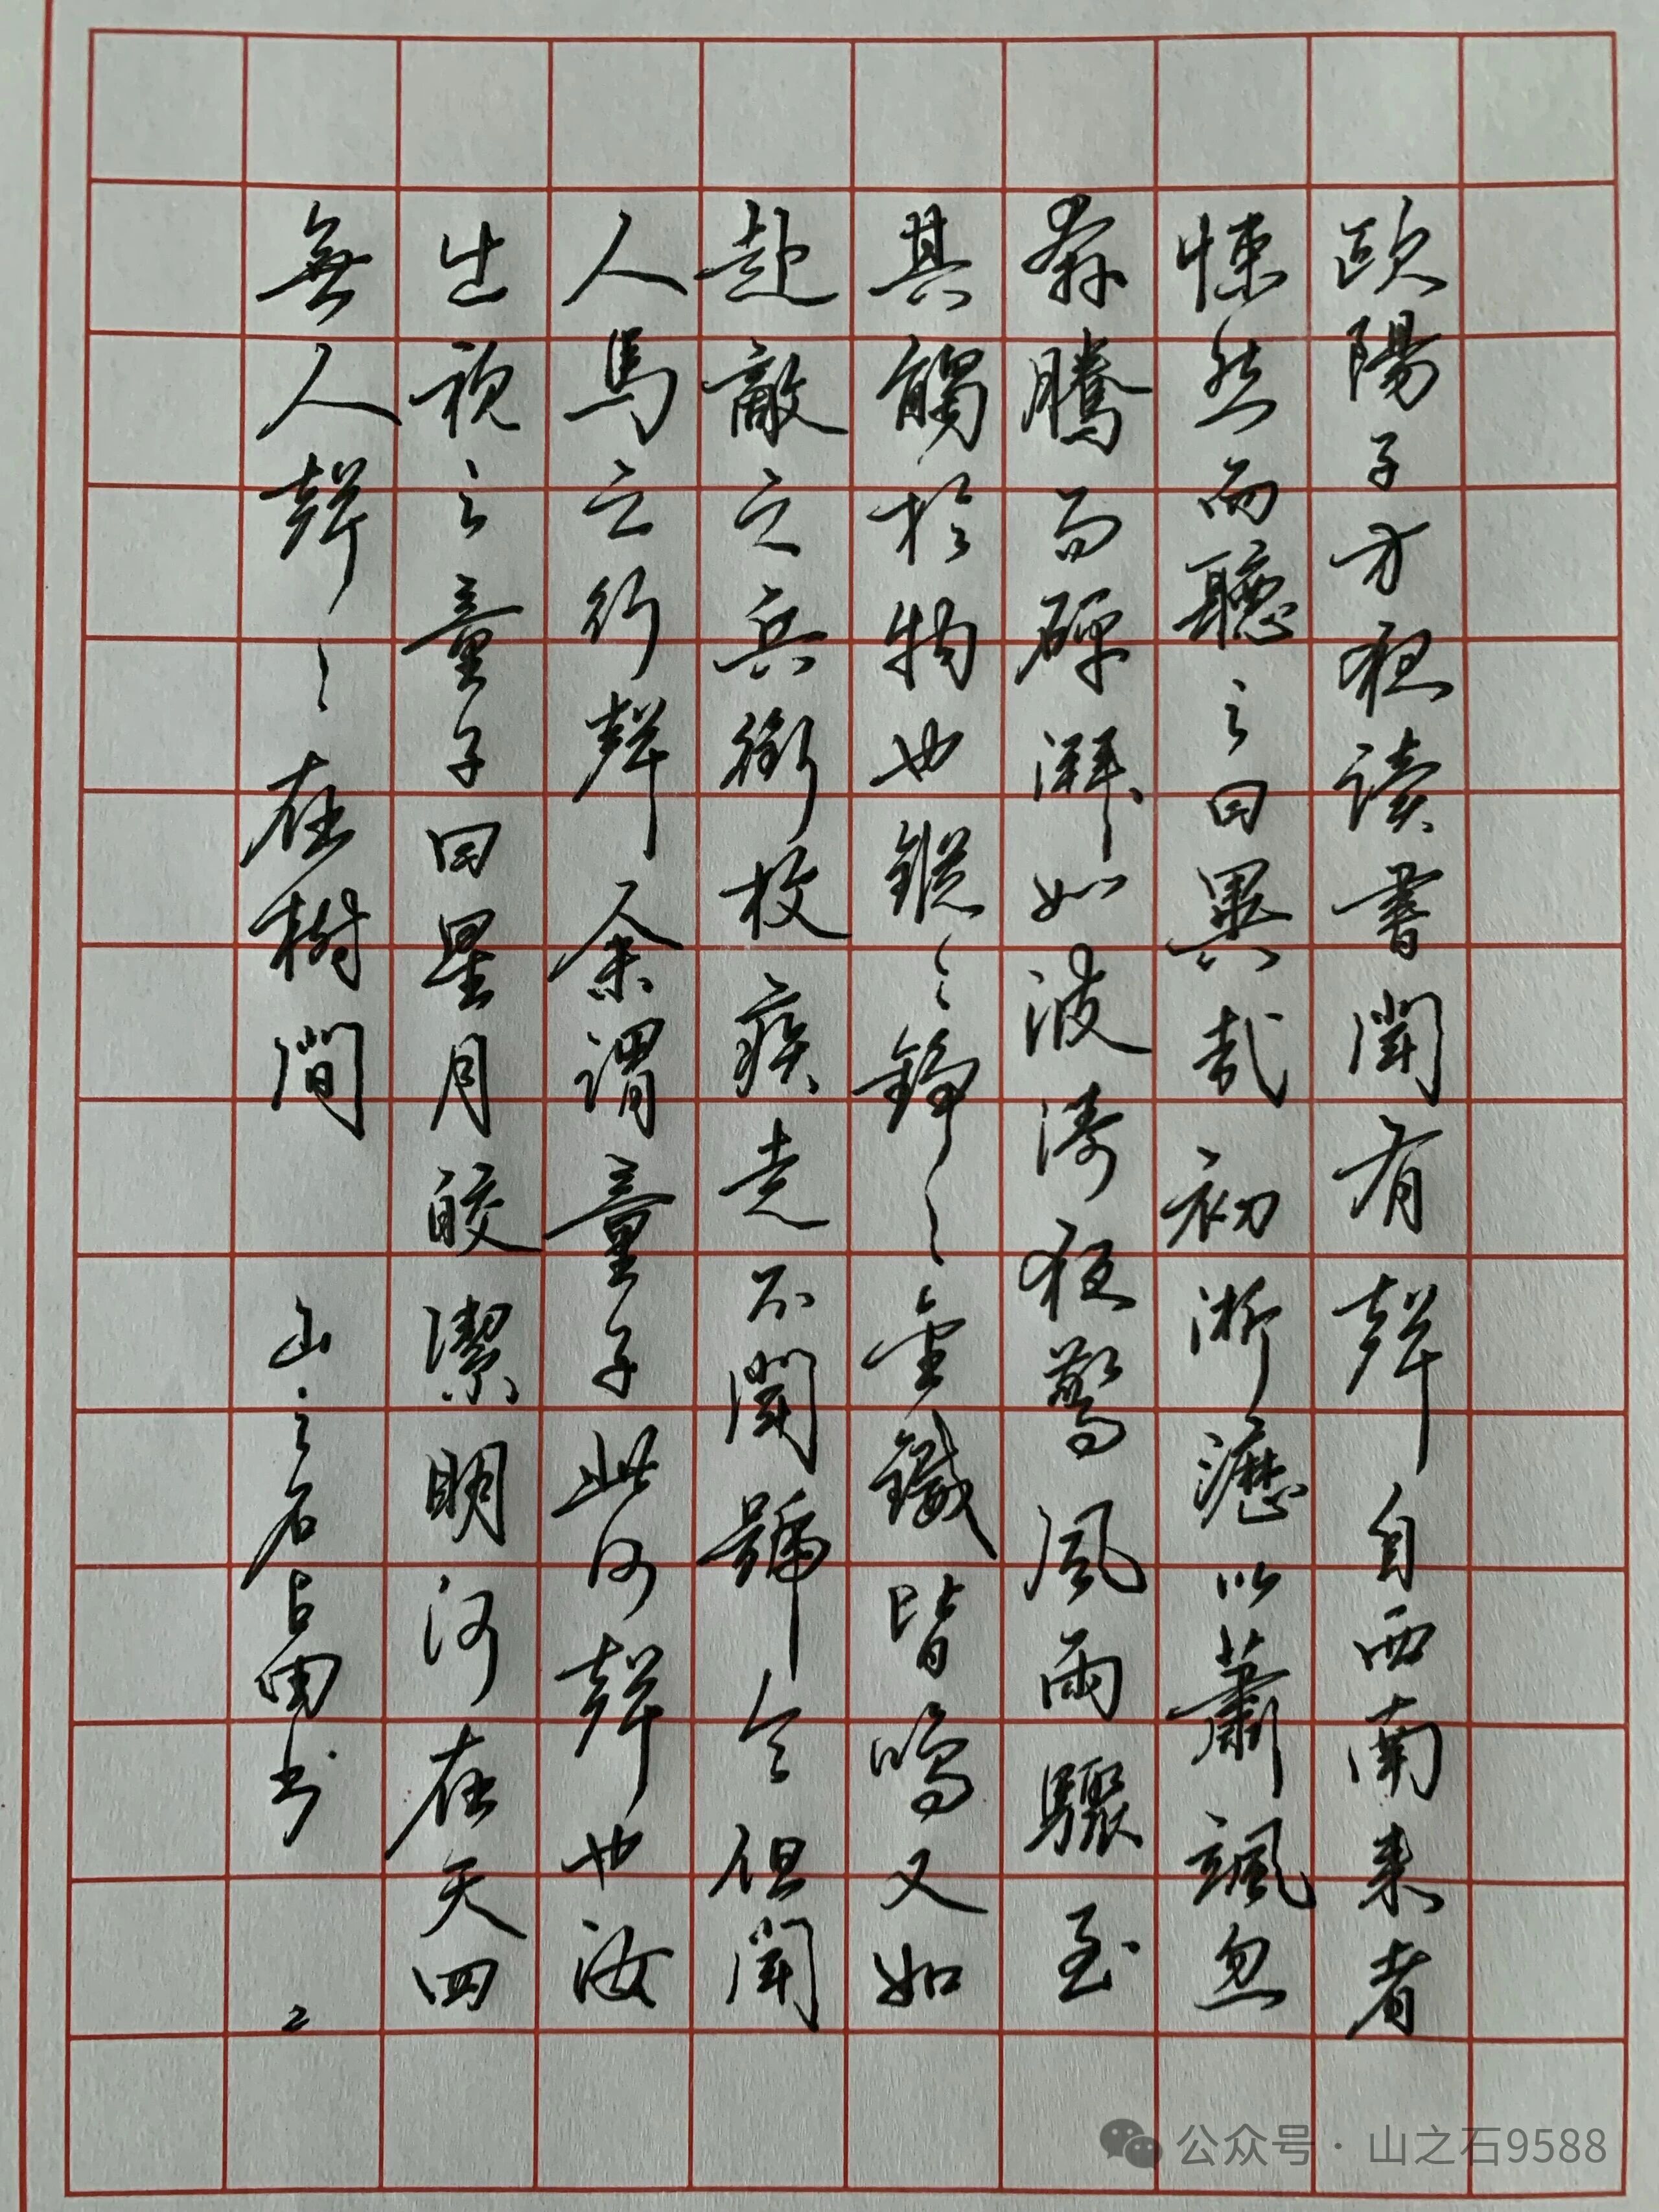 歐陽子方夜读書聞有聲自西南来者
悚然而聽之曰異哉初淅瀝以蕭颯忽
奔騰而砰湃如波濤夜驚風雨驟至
其觸於物也鏦〻錚〻金鐵皆鳴又如
赴敵之兵銜枚疾走不聞號令但聞
人馬之行聲余謂童子此何聲也汝
出視之童子曰星月皎潔明河在天四
無人聲〻在樹間 山之石占勇书
公众号·山之石9588